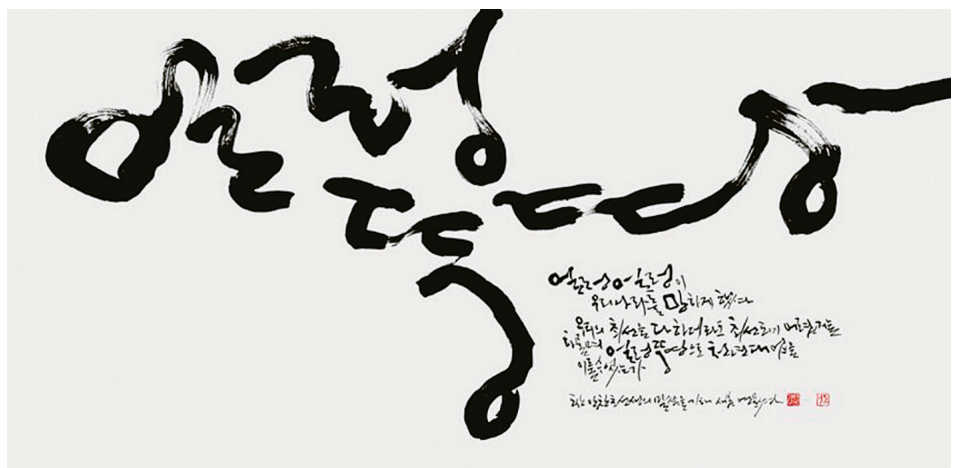 얼렁
뚱땅
얼렁얼렁이
우리나라를 망하게 했다
우리의 최선을 다하더라도 최선되기 어렵거늘
하물며 얼렁뚱땅으로
이룰수있는가
도산 안창호선생의 말씀을